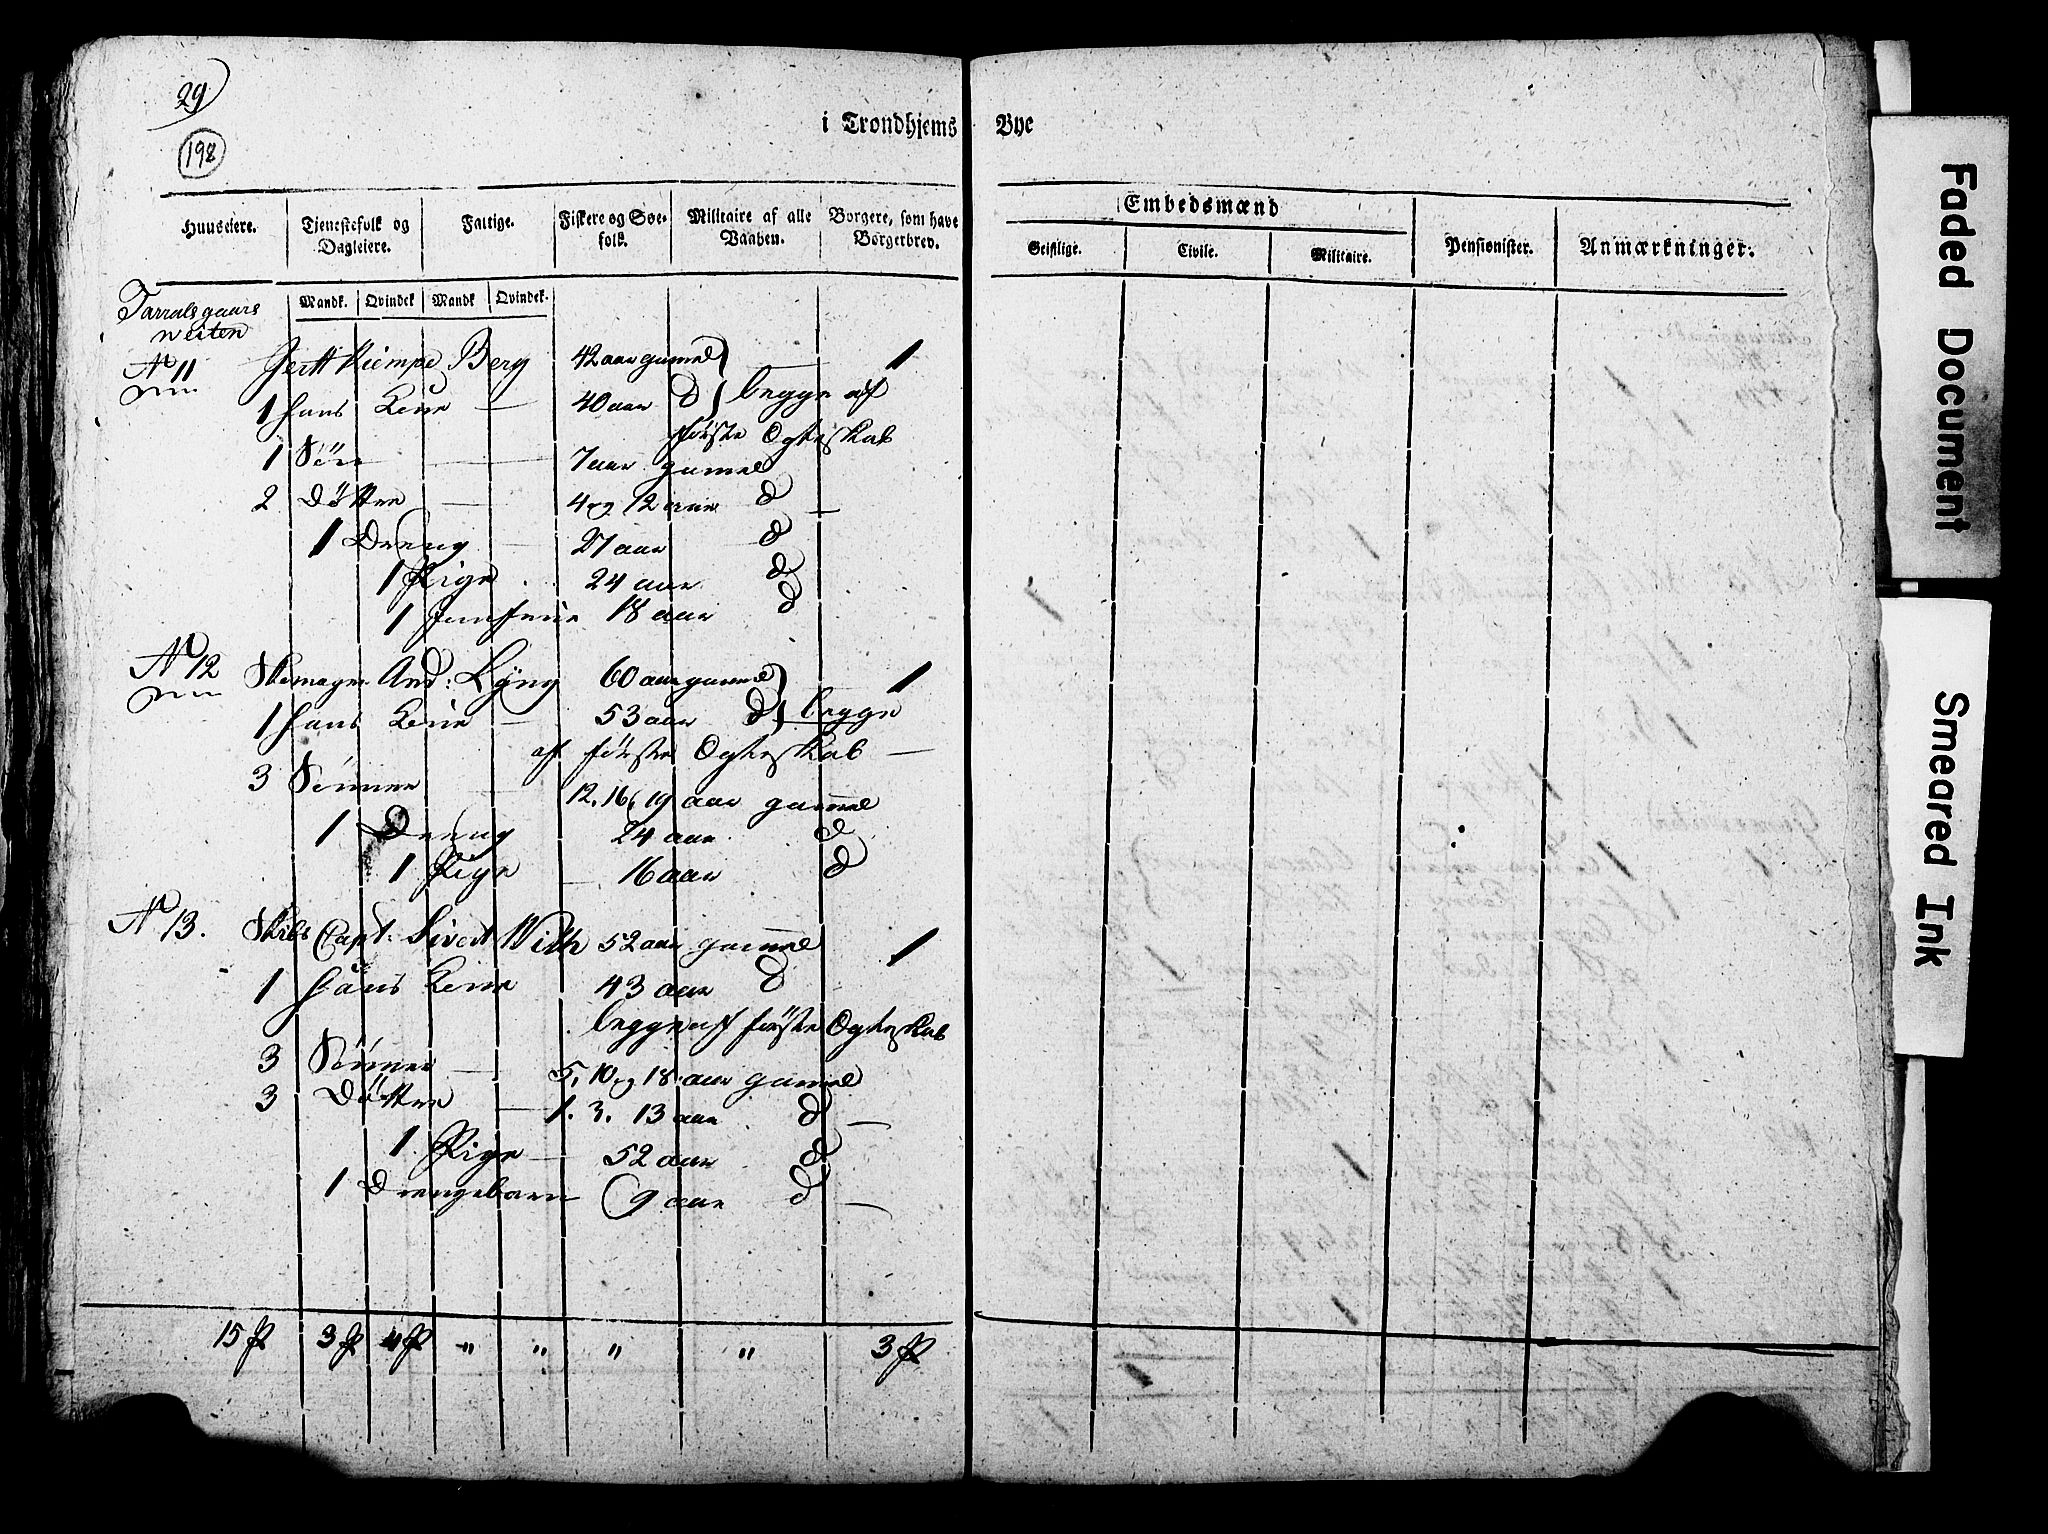 29
198
i Trondhjems Bye
Huuseiere. Tjenestefolk og Dagleiere. Fattige. Fiskere og Søe-folk. Militaire af alle Vaaben. Borgere, som have Borgerbrev. Embedsmænd Geistlige. Civile. Militaire. Pensionister. Anmærkninger.
Mandk. Qvindek Mandk Qvindek.
Tarralsgaars
Weiten
No 11 Gertt Kiempe Berg 42 aar gamel 1
1 Hans Kone 40 aar d begge af
første Ogteskab
1 Søn 7 aar gamel
2 Døttre 4 og 12 aar d
1 Dreng 27 aar d
1 Pige 24 aar d
1 Jomfrue 18 aar d
No 12 Skomager And: Lyng 60 aar gamel 1
1 Hans Kone 53 aar d begge
af første Ogteskab
3 Sønner 12. 16. 19 aar gamel
1 Dreng 24 aar d
1 Pige 16 aar d
No 13. Skibs Capt: Sivert With 52 aar gamel 1
1 Hans Kone 43 aar d
begge af første Ogteskab
3 Sønner 5, 10 og 18 aar gamel
3 Døttre 1. 3. 13 aar d
1 Pige 52 aar d
1 Drengebarn 9 aar d
15 P 3 P 4 P " " " " 3 P
Faded Document
Smeared Ink